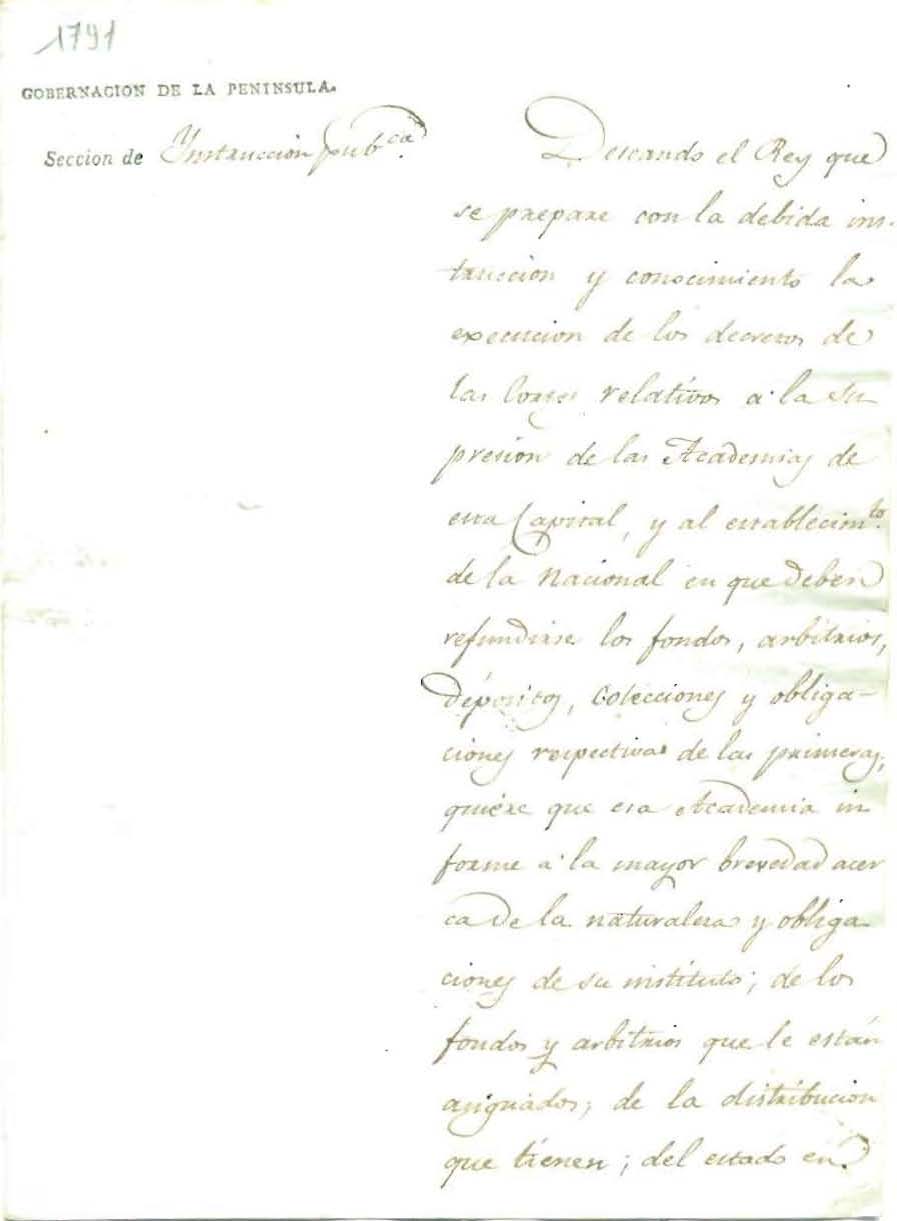 1791
GOBERNACION DE LA PENINSULA.
Seccion de Ynstruccion pubca.
Deseando el Rey que
se prepare con la debida ins-
truccion y conocimiento la
execucion de los decretos de
las Cortes relativos a la su
presion de las Academias de
esta Capital, y al establecimto.
de la Nacional en que deben
refundirse los fondos, arbitrios,
dépositos, colecciones y obliga-
ciones respectivas de las primeras,
quiere que esa Academia in
forme a la mayor brevedad acer
ca de la naturaleza y obliga-
ciones de su instituto; de los
fondos y arbitrios que le están
asignados; de la distribucion
que tienen; del estado en